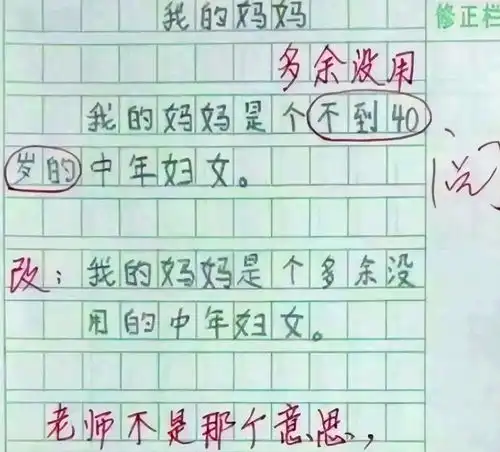 我的妈妈
修正栏
多余没用
我的妈妈是个不到40
岁的中年妇女。
阅
改：我的妈妈是个多余没
用的中年妇女。
老师不是那个意思，